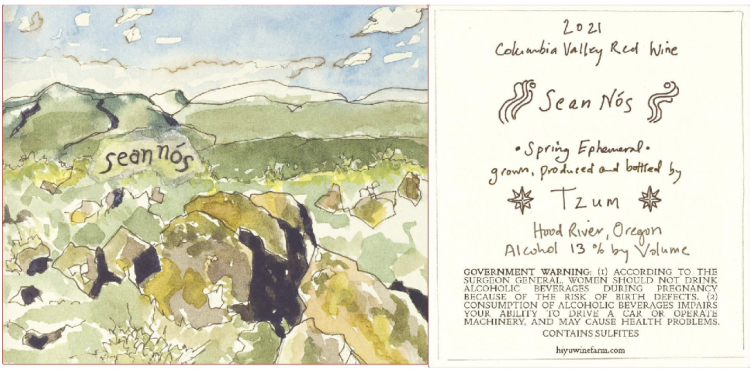 sean nós
2021
Columbia Valley Red Wine
Sean Nós
• Spring Ephemeral •
grown, produced and bottled by
Tzum
Hood River, Oregon
Alcohol 13 % by Volume
GOVERNMENT WARNING: (1) ACCORDING TO THE
SURGEON GENERAL, WOMEN SHOULD NOT DRINK
ALCOHOLIC BEVERAGES DURING PREGNANCY
BECAUSE OF THE RISK OF BIRTH DEFECTS. (2)
CONSUMPTION OF ALCOHOLIC BEVERAGES IMPAIRS
YOUR ABILITY TO DRIVE A CAR OR OPERATE
MACHINERY, AND MAY CAUSE HEALTH PROBLEMS.
CONTAINS SULFITES
hiyuwinefarm.com